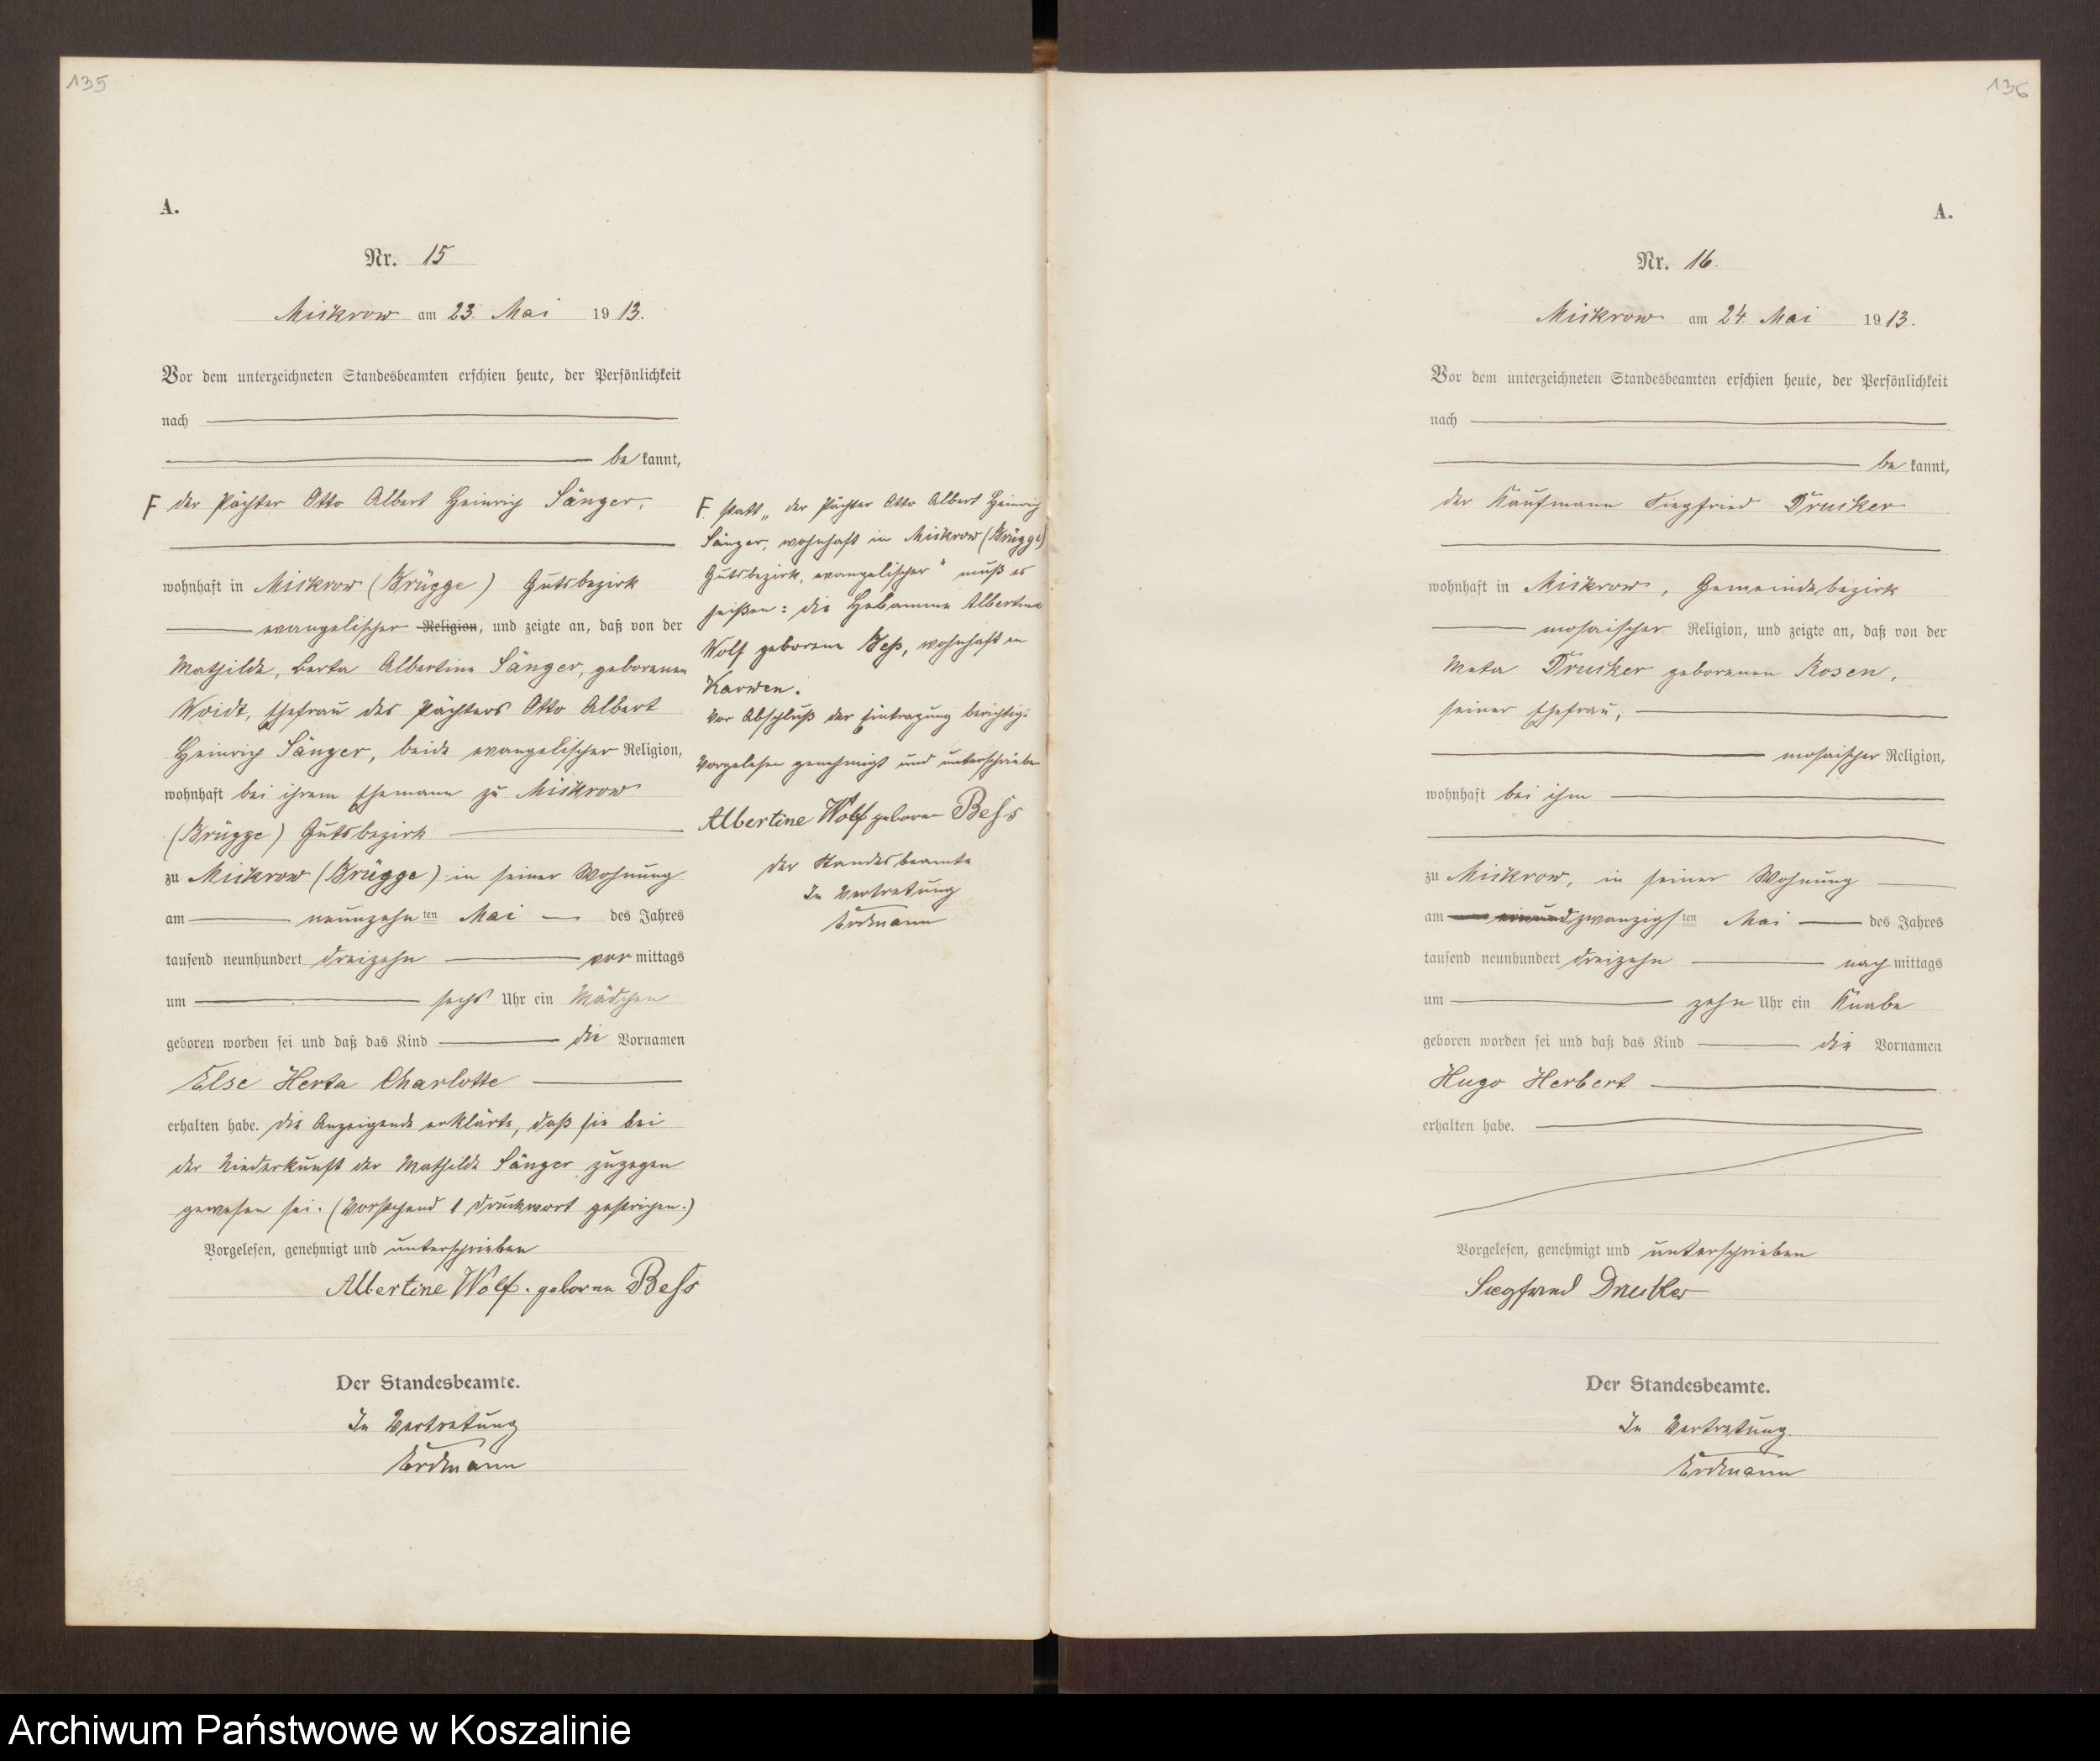 135
A.
Nr. 15
Mickrow am 23. Mai 1913.
Vor dem unterzeichneten Standesbeamten erschien heute, der Persönlichkeit
nach
bekannt,
F der Pächter Otto Albert Heinrich Sänger,
wohnhaft in Mickrow (Brügge) Gutsbezirk
evangelischer Religion, und zeigte an, daß von der
Mathilde, Berta Albertine Sänger, geborenen
Voidt, Ehefrau des Pächters Otto Albert
Heinrich Sänger, beide evangelischer Religion,
wohnhaft bei ihrem Ehemann zu Mickrow
(Brügge) Gutsbezirk
zu Mickrow (Brügge) in seiner Wohnung
am neunzehnten Mai des Jahres
tausend neunhundert dreizehn vormittags
um sechs Uhr ein Mädchen
geboren worden sei und daß das Kind die Vornamen
Else Herta Charlotte
erhalten habe. Die Anzeigende erklärte, daß sie bei
der Niederkunft der Mathilde Sänger zugegen
gewesen sei. (Vorstehend 1 Druckwort gestrichen.)
Vorgelesen, genehmigt und unterschrieben
Albertine Wolf. geboren Bess
Der Standesbeamte.
In Vertretung
Erdmann
F. statt „der Pächter Otto Albert Heinrich
Sänger, wohnhaft in Mickrow (Brügge)
Gutsbezirk, evangelischer" muß es
heißen: die Hebamme Albertine
Wolf geborene Beß, wohnhaft in
Karwen.
Vor Abschluß der Eintragung berichtigt
Vorgelesen genehmigt und unterschrieben
Albertine Wolf geboren Bess
Der Standesbeamte
In Vertretung
Erdmann
136
A.
Nr. 16.
Mickrow am 24. Mai 1913.
Vor dem unterzeichneten Standesbeamten erschien heute, der Persönlichkeit
nach
bekannt,
der Kaufmann Siegfried Drucker
wohnhaft in Mickrow, Gemeindebezirk
mosaischer Religion, und zeigte an, daß von der
Meta Drucker geborenen Rosen,
seiner Ehefrau,
mosaischer Religion,
wohnhaft bei ihm
zu Mickrow, in seiner Wohnung
am einundzwanzigsten Mai des Jahres
tausend neunhundert dreizehn nachmittags
um zehn Uhr ein Knabe
geboren worden sei und daß das Kind die Vornamen
Hugo Herbert
erhalten habe.
Vorgelesen, genehmigt und unterschrieben
Siegfried Drucker
Der Standesbeamte.
In Vertretung
Erdmann
Archiwum Państwowe w Koszalinie